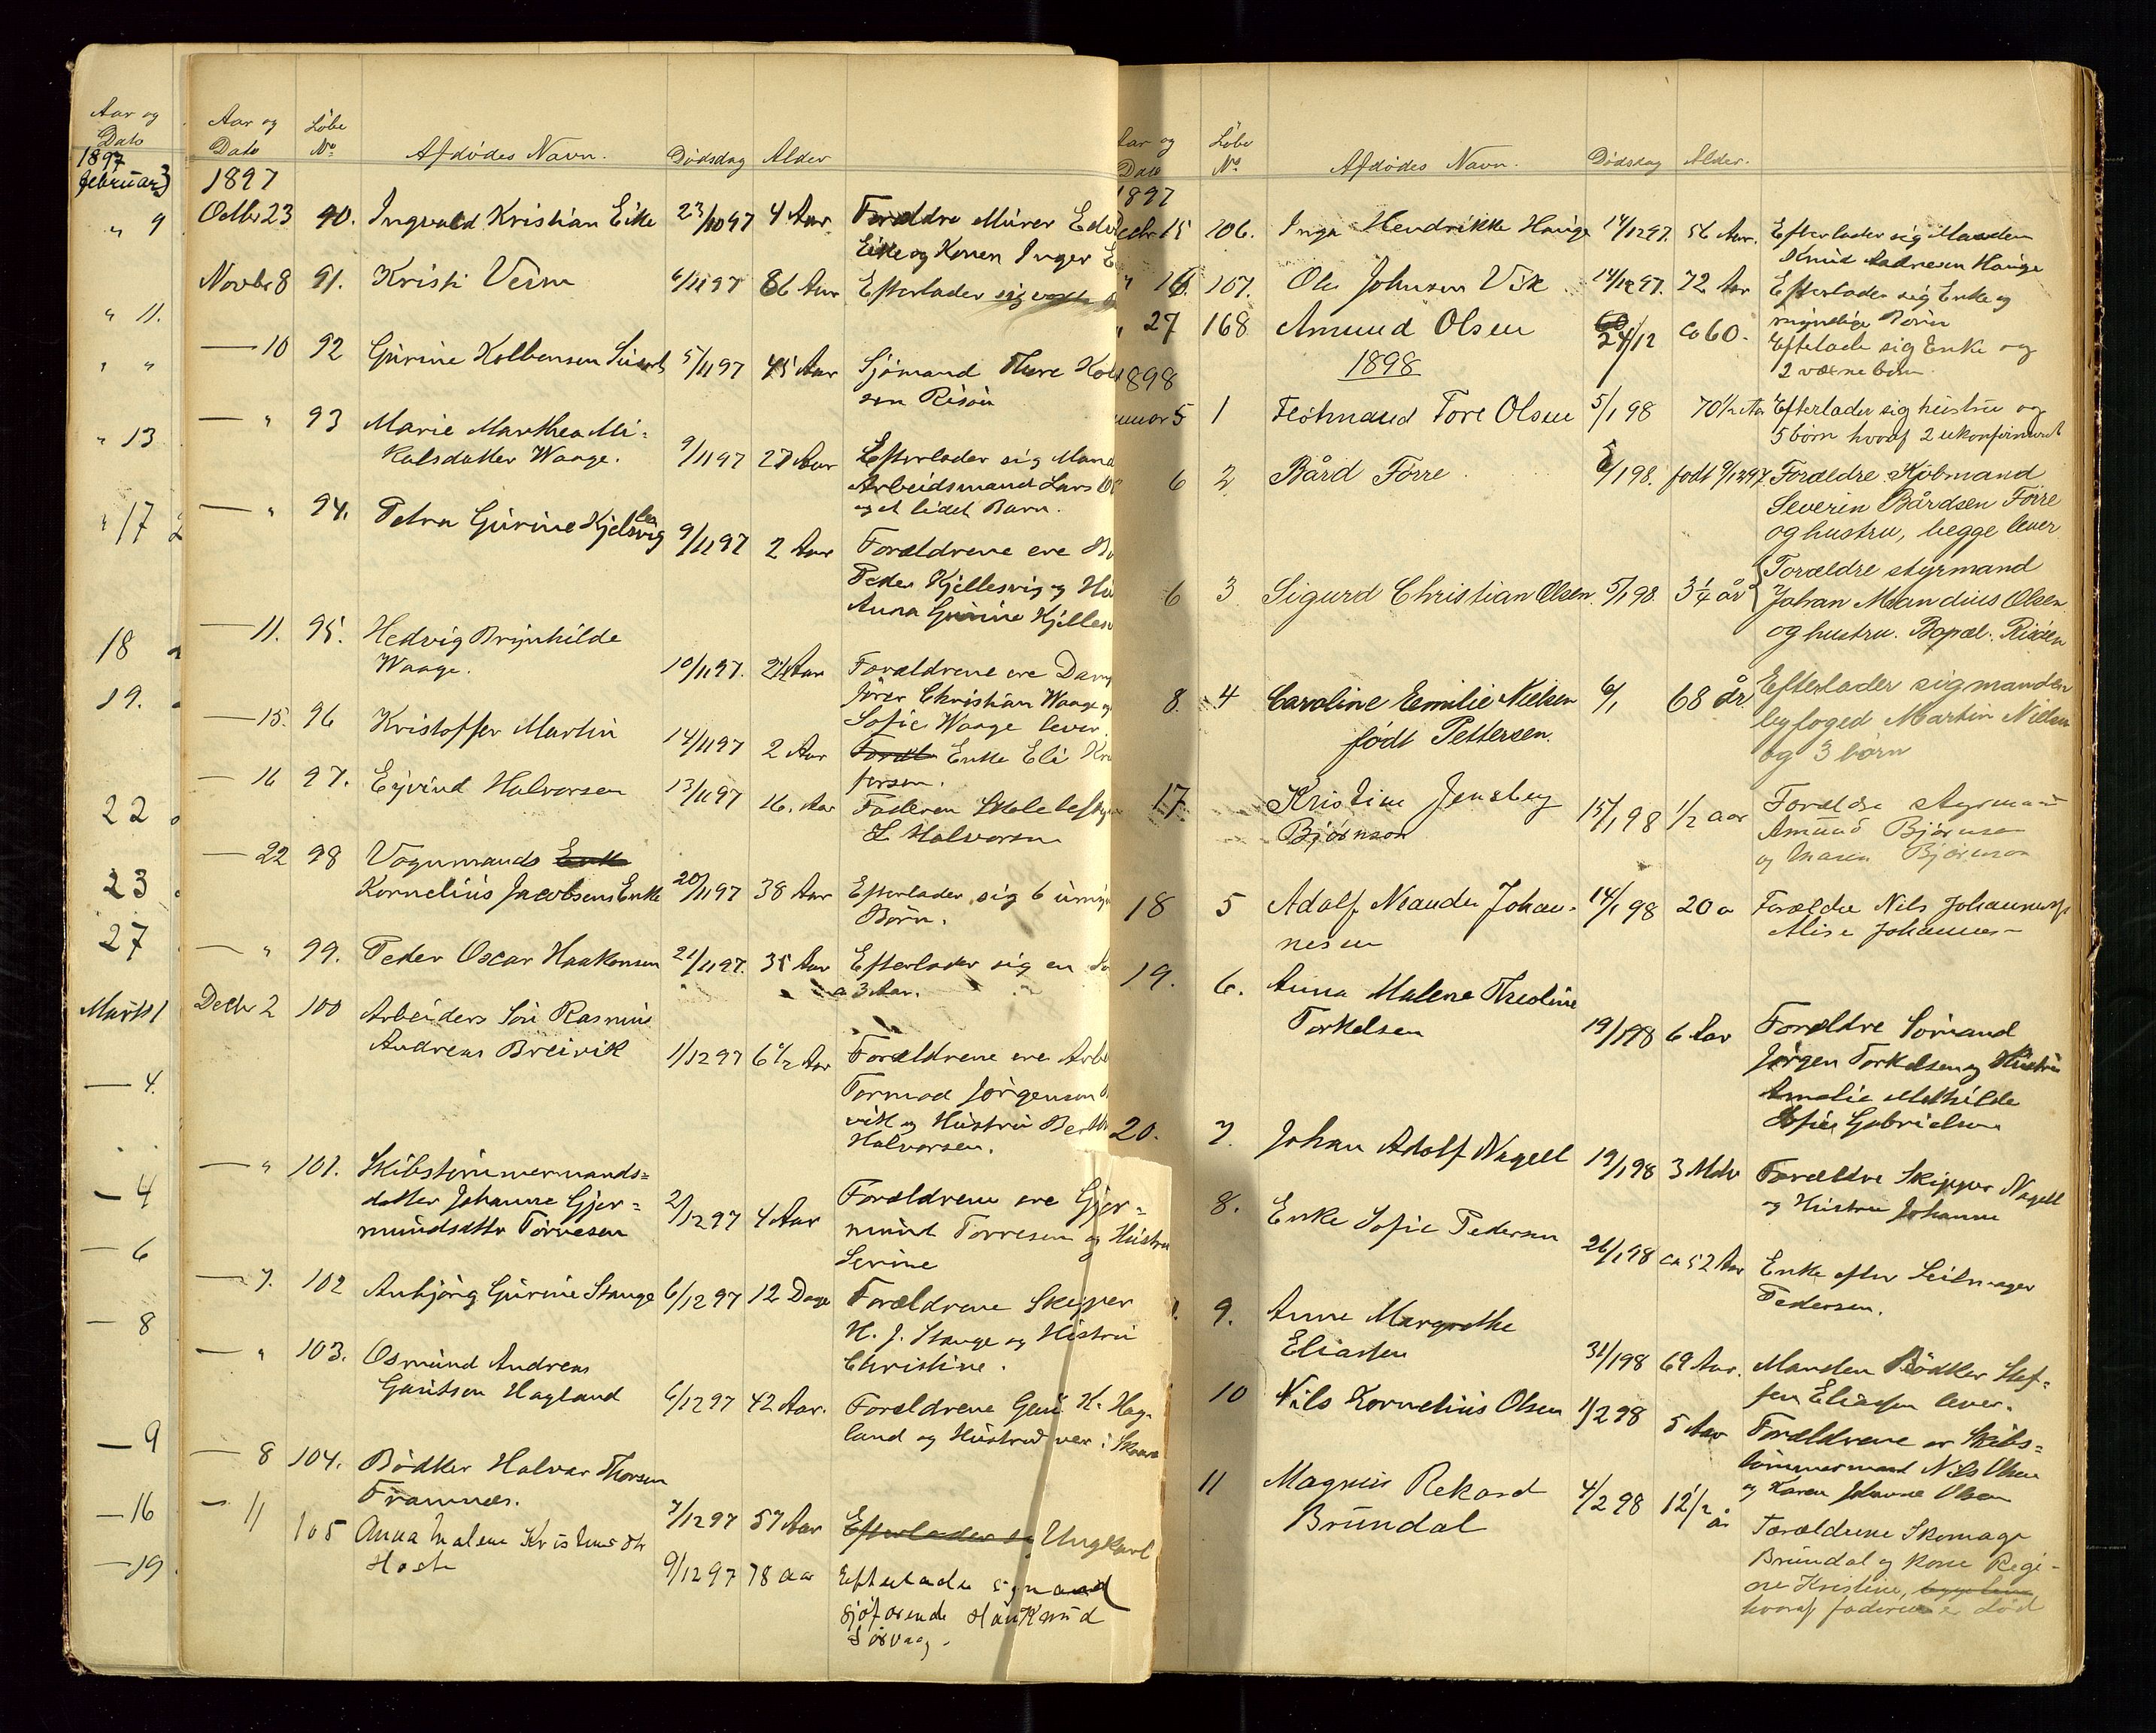 Aar og
Dato
1897
februar 3
" 9
" 11.
" "
" 13
" 17
18
19.
22
23
27
Marts 1
— 4.
— 4
— 6
— 8
— 9
— 16
— 19.
Aar og Dato Løbe No Afdødes Navn. Dødsdag Alder
1897
Octbr 23 90. Ingvald Kristian Eike 23/10 97 4 Aar Forældre Murer
Eike og Konen Inger
Novbr 8 91. Kristi Veim 6/11 97 86 Aar Efterlader sig
— 10 92 Gurine Kolbensen 5/11 97 45 Aar Sjømand Thure
sen Risøin
— " 93 Marie Marthea Mi-
kalsdatter Waage. 9/11 97 27 Aar Efterlader sig
Arbeidsmand Lars
og et lidet Barn.
— " 94. Petra Gurine Kjellesvig 9/11 97 2 Aar Forældrene ere
Peder Kjellesvig og
Anna Gurine
— 11. 95. Hedvig Brynhilde
Waage. 10/11 97. 2½ Aar Forældrene ere
fører Christian Waage og
Sofie Waage lever.
— 15. 96 Kristoffer Martin 14/11 97 2 Aar Enke Eli
fersen.
— 16 97. Eyvind Halvorsen 13/11 97 16. Aar Faderen
L Halvorsen
— 22 98 Vognmands Enke
Kornelius Jacobsens Enke 20/11 97 38 Aar Efterlader sig 6
Børn.
— " 99. Peder Oscar Haakonsen 21/11 97. 35 Aar Efterlader sig en
a 3 Aar.
Decbr 2 100 Arbeiders Søn Rasmus
Andreas Breivik 1/12 97 6½ Aar Forældrene ere
Tormod Jørgensen
vik og Hustru
Halvorsen.
— " 101. Skibstømmermands=
datter Johanne Gjer=
mundsdttr Torresen 2/12 97 4 Aar Forældrene ere Gjer=
mund Torresen og Hustru
Serine
— 7. 102 Anbjørg Gurine Stange 6/12 97 12 Dage Forældrene Skipper
H. J. Stange og Hustru
Christine.
— " 103. Osmund Andreas
Gautsen Hagland 6/12 97 42 Aar. Forældrene Gaut K. Hag-
land og Hustru
— 8 104. Bødker Halvar Thorsen
Framnes. 7/12 97 57 Aar Efterlader sig Ungkarl
— 11 105 Anna Malene
9/12 97 78 aar Efterlader sig mand
sjøfarende
Aar og Dato Løbe No Afdødes Navn. Dødsdag Alder.
1897
Decbr 15 106. Inga Hendrikke Hauge 14/12 97. 56 Aar. Efterlader sig Manden
Knud Andresen Hauge
" 16. 107. Ole Johnsen Vik 14/12 97. 72 Aar Efterlader sig Enke og
myndige Børn
" 27 168 Amund Olsen 24/12 ca 60. Efterlade sig Enke og
2 voxne børn
1898
1898
Januar 5 1 Fløtmand Tore Olsen 5/1 98 70½ Aar Efterlader sig hustru og
5 børn hvoraf 2 ukonfirmeret
6 2 Bård Førre 5/1 98. født 9/12 97 Forældre Kjøbmand
Severin Bårdsen Førre
og hustru, begge lever
6 3 Sigurd Christian Olsen. 5/1 98. 3¼ år Forældre styrmand
Johan Mandius Olsen.
og hustru. Bopæl. Risøen
8. 4 Caroline Emilie Nielsen
født Pettersen. 6/1 68 år Efterlader sig manden
byfoged Martin Nielsen
og 3 børn
17. Kristine Jensbey
Bjørnson 15/1 98 ½ aar Forældre styrmand
Amund Bjørnson
og Maren Bjørnson
18 5 Adolf Neander Johan-
nesen 14/1 98 20 a Forældre Nils Johannesen
Alise Johannes-
19. 6. Anna Malene Theoline
Torkelsen 19/1 98 6 Aar Forældre Sømand
Jørgen Torkelsen og Hustru
Amalie Mathilde
Sofie Gabrielsen
20. 7. Johan Adolf Nagell 19/1 98 3 Mdr Forældre Skipper Nagell
og Hustru Johanne
8. Enke Sofie Pedersen 26/1 98 ca 52 Aar Enke efter Seilmager
Pedersen.
9. Anne Margrethe
Eliassen 31/1 98 69 Aar. Manden Bødker Stef=
fen Eliassen lever.
10 Nils Kornelius Olsen 1/2 98 5 Aar Forældrene er Skibs=
tømmermand Nils Olsen
og Karen Johanne Olsen
11 Magnus Rekard
Brundal 4/2 98 12½ år Forældrene Skomager
Brundal og kone Regi-
ne Kristine, begge lever,
hvoraf faderen er død